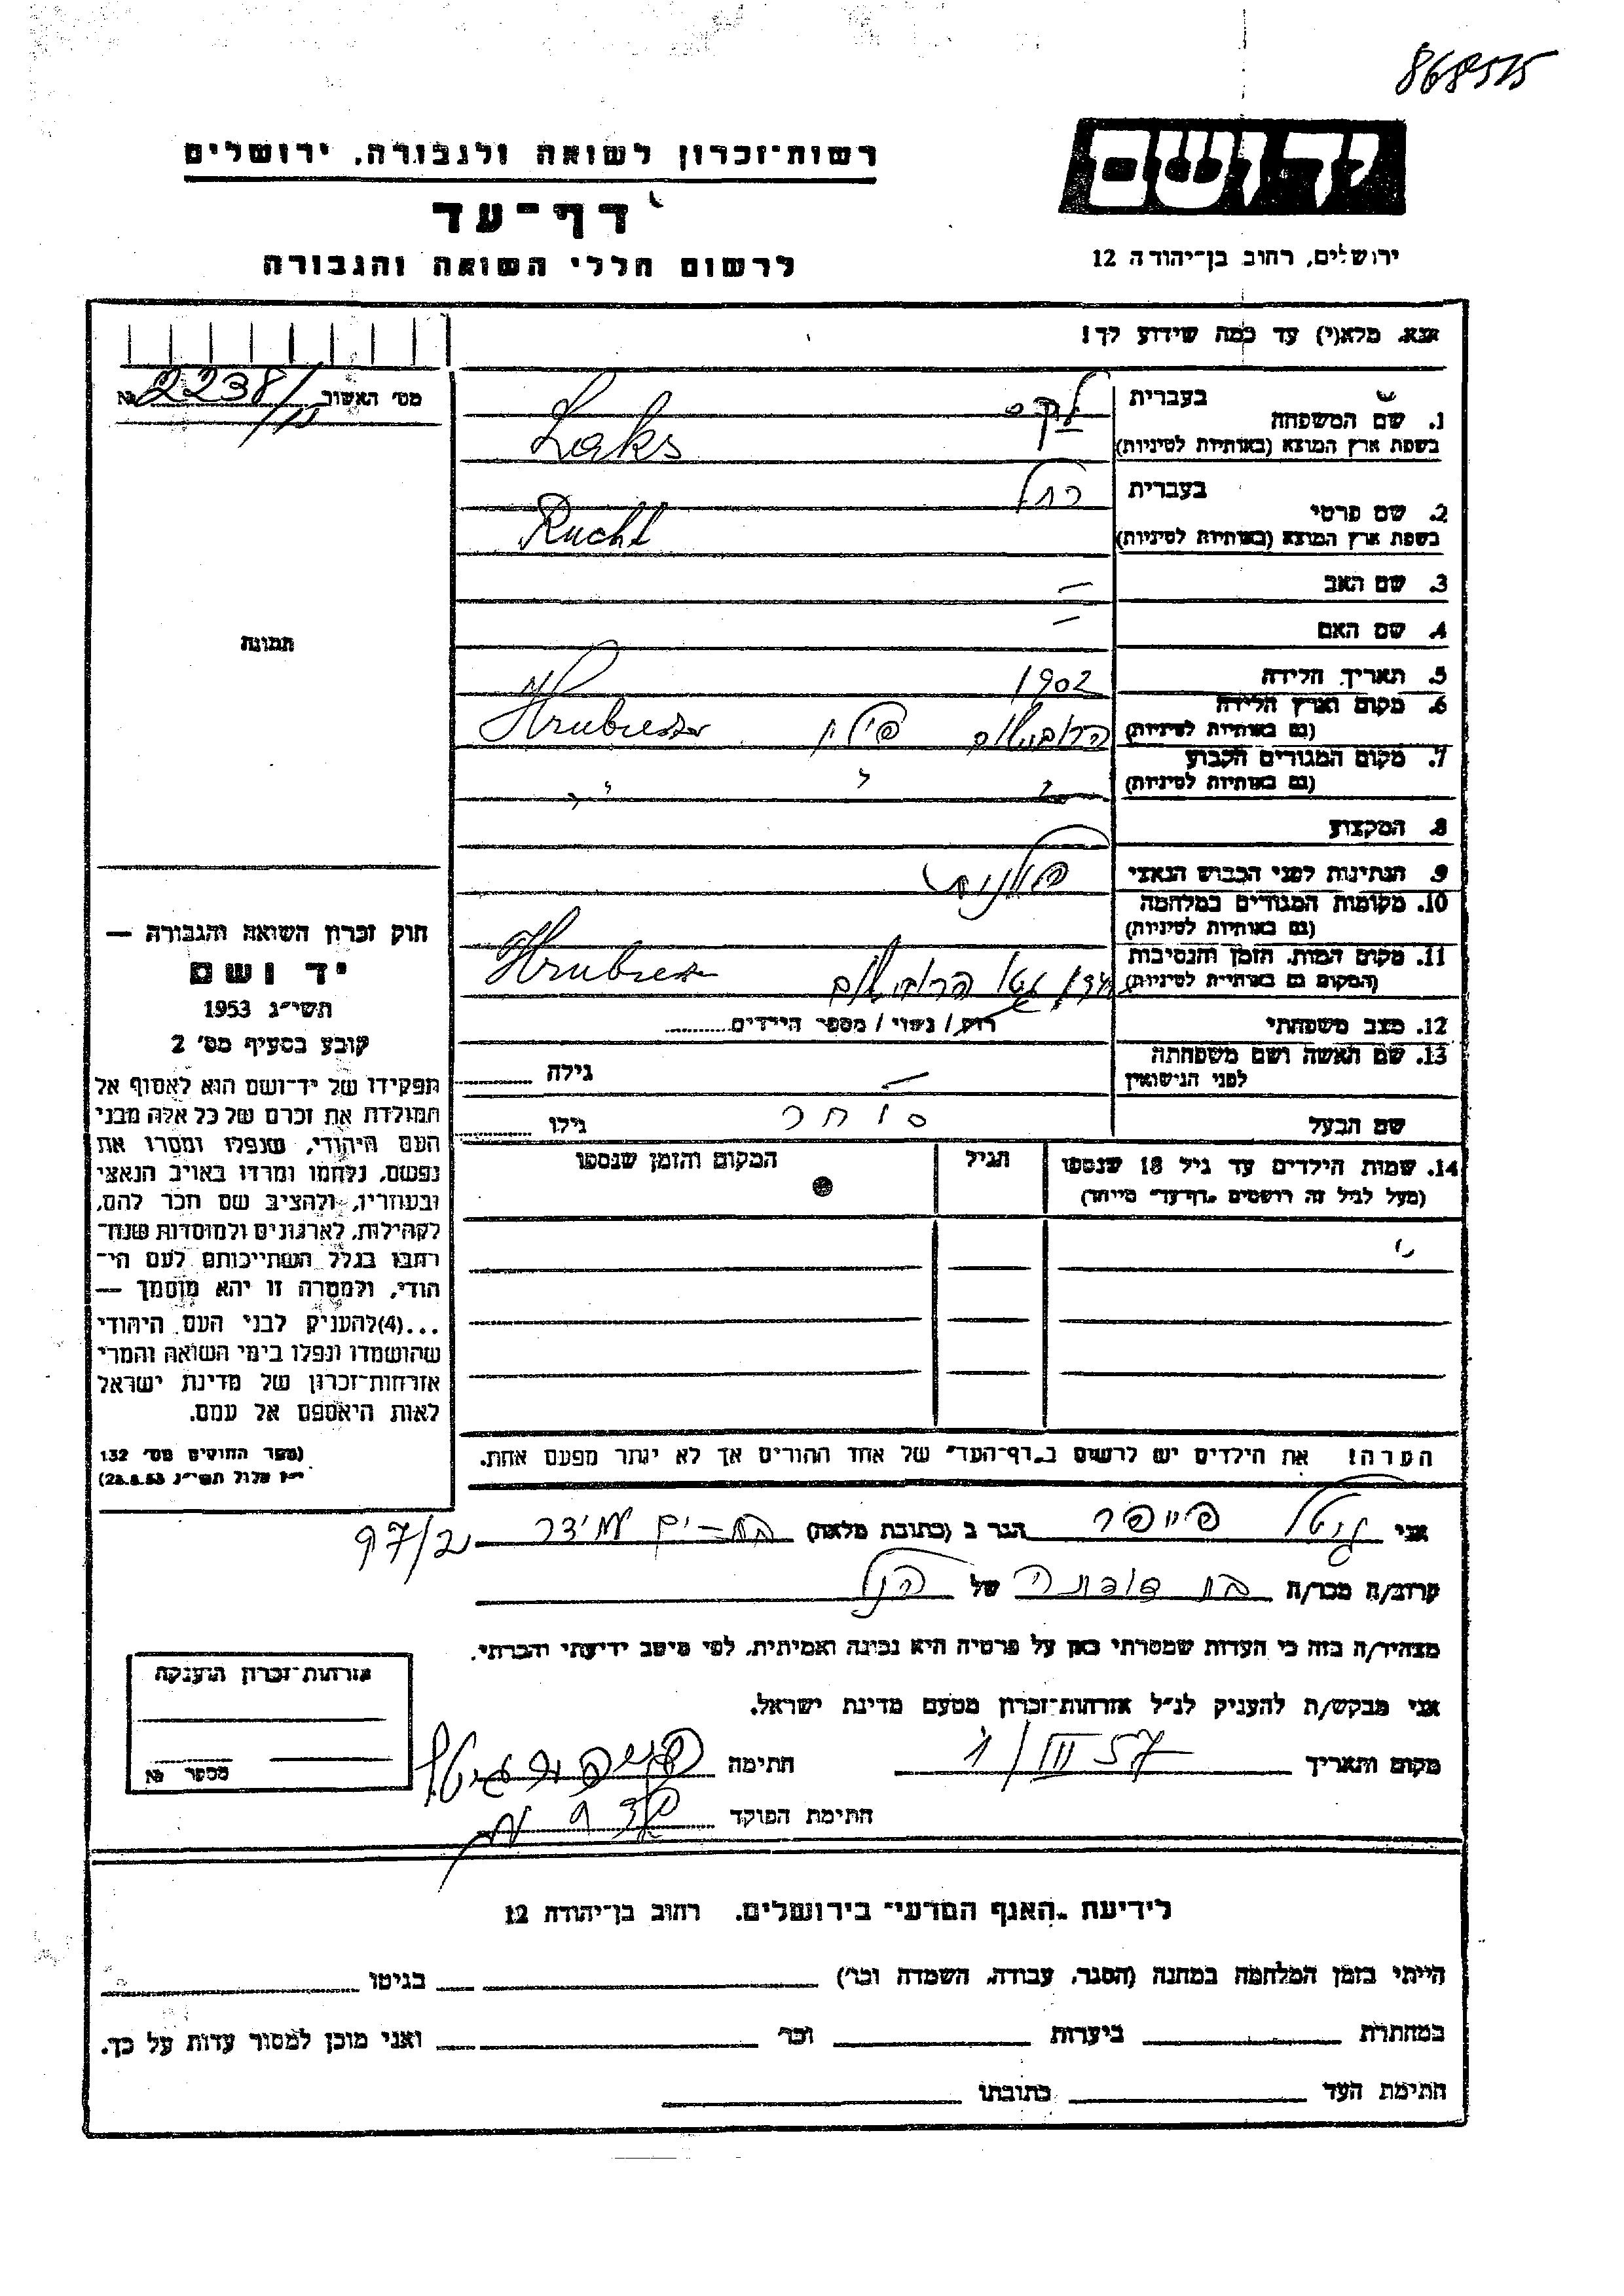 868515
יד ושם
ירושלים, רחוב בן־יהודה 12
רשות־זכרון לשואה ולגבורה, ירושלים
דף־עד
לרשום חללי השואה והגבורה
אנא, מלא(י) עד כמה שידוע לך!
מס׳ האשור 2238/ №
1. שם המשפחה בעברית לקס
בשפת ארץ המוצא (באותיות לטיניות) Laks
2. שם פרטי בעברית רחל
בשפת ארץ המוצא (באותיות לטיניות) Ruchl
3. שם האב —
4. שם האם —
5. תאריך הלידה 1902
6. מקום וארץ הלידה
(גם באותיות לטיניות) הרובישוב פולין
7. מקום המגורים הקבוע
(גם באותיות לטיניות) " " "
8. המקצוע
9. הנתינות לפני הכבוש הנאצי פולנית
10. מקומות המגורים במלחמה
(גם באותיות לטיניות)
11. מקום המות, הזמן והנסיבות
(המקום גם באותיות לטיניות) גטו הרובישוב
12. מצב משפחתי רווק / נשוי / מספר הילדים
13. שם האשה ושם משפחתה
לפני הנישואין — גילה
שם הבעל סוחר גילו
14. שמות הילדים עד גיל 18 שנספו הגיל המקום והזמן שנספו
(מעל לגיל זה רושמים „דף־עד״ מיוחד)
הערה! את הילדים יש לרשום ב„דף־העד״ של אחד ההורים אך לא יותר מפעם אחת.
תמונה
חוק זכרון השואה והגבורה —
יד ושם
תשי״ג 1953
קובע בסעיף מס׳ 2
תפקידו של יד־ושם הוא לאסוף אל
המולדת את זכרם של כל אלה מבני
העם היהודי, שנפלו ומסרו את
נפשם, נלחמו ומרדו באויב הנאצי
ובעוזריו, ולהציב שם וזכר להם,
לקהילות, לארגונים ולמוסדות שנח־
רבו בגלל השתייכותם לעם הי־
הודי, ולמטרה זו יהא מוסמך —
...(4) להעניק לבני העם היהודי
שהושמדו ונפלו בימי השואה והמרי
אזרחות־זכרון של מדינת ישראל
לאות היאספם אל עמם.
(ספר החוקים מס׳ 132
י״ז אלול תשי״ג 28.8.53)
אני גיטל פייפר הגר ב (כתובת מלאה) בת־ים 97/2
קרוב/ה מכר/ה בת דודתה של הנ״ל
מצהיר/ה בזה כי העדות שמסרתי כאן על פרטיה היא נכונה ואמיתית, לפי מיטב ידיעתי והכרתי.
אני מבקש/ת להעניק לנ״ל אזרחות־זכרון מטעם מדינת ישראל.
מקום ותאריך 1/III 57 חתימה פייפר גיטל
חתימת הפוקד
אזרחות־זכרון הוענקה
מספר №
לידיעת „האגף המדעי״ בירושלים, רחוב בן־יהודה 12
הייתי בזמן המלחמה במחנה (הסגר, עבודה, השמדה וכו׳) בגיטו
במחתרת ביערות וכו׳ ואני מוכן למסור עדות על כך.
חתימת העד כתובתו